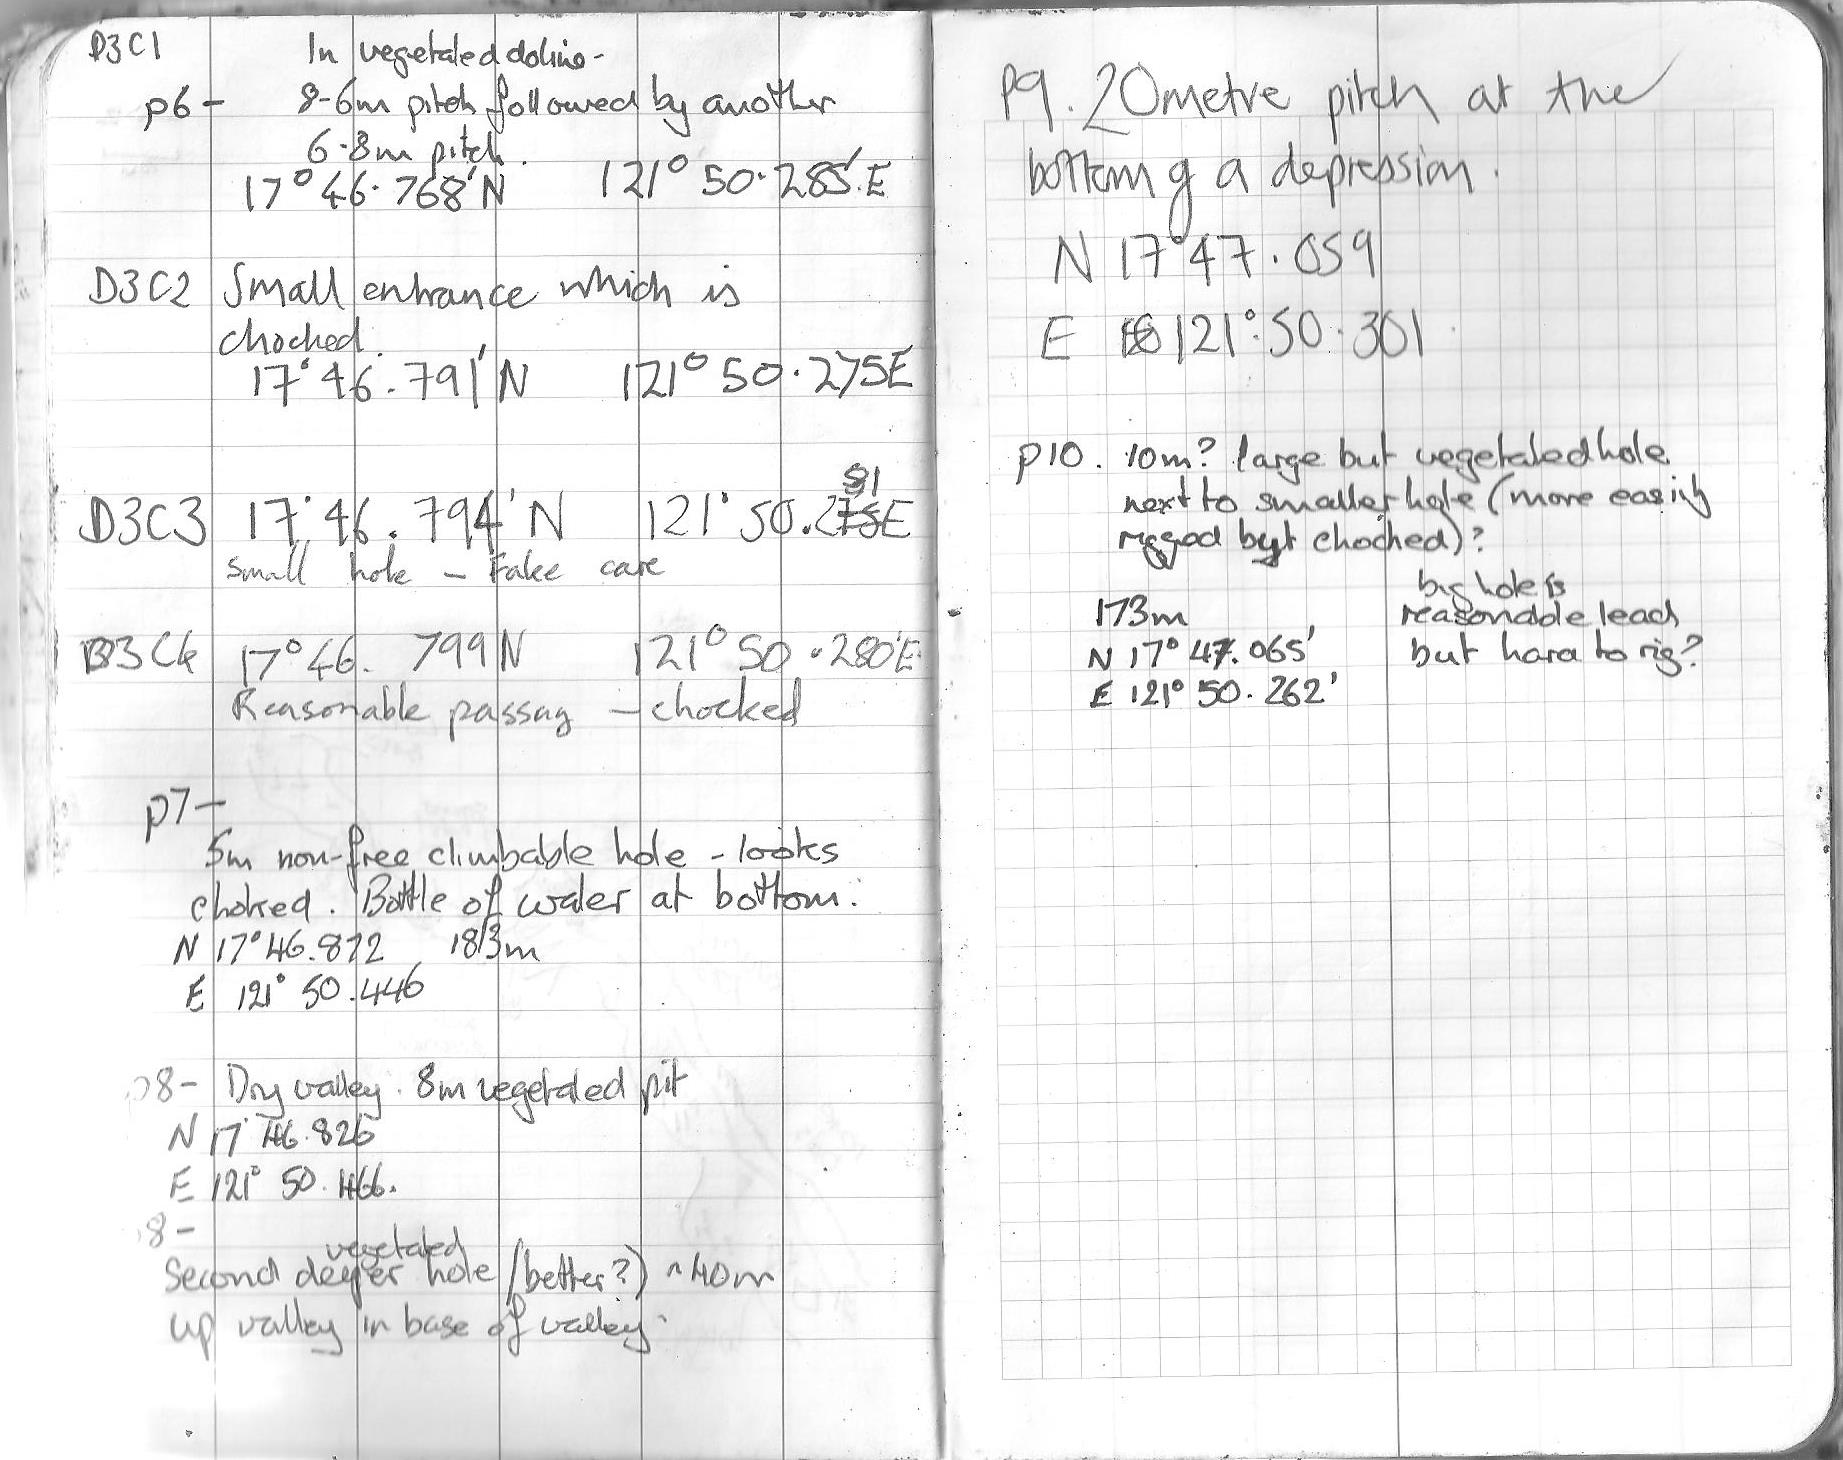 D3C1 In vegetated doline-
p6- 8-6m pitch followed by another
6-8m pitch.
17° 46.768'N 121° 50.285'E
D3C2 Small entrance which is
chocked.
17° 46.791'N 121° 50.275E
D3C3 17° 46.794'N 121° 50.281E
small hole - Fake cave
D3C4 17° 46. 799N 121° 50.280'E
Reasonable passag - chocked
p7-
5m non-free climbable hole - looks
choked. Bottle of water at bottom.
N 17° 46.872 183m
E 121° 50.446
p8- Dry valley. 8m vegetated pit
N 17° 46.826
E 121° 50.466.
p8-
vegetated
Second deeper hole (better?) ~40m
up valley in base of valley.
P9. 20metre pitch at the
bottom of a depression.
N 17° 47.059
E 121° 50.301
p10. 10m? large but vegetated hole
next to smaller hole (more easily
rigged but chocked)?
big hole is
173m reasonable lead
N 17° 47.065' but hard to rig?
E 121° 50.262'